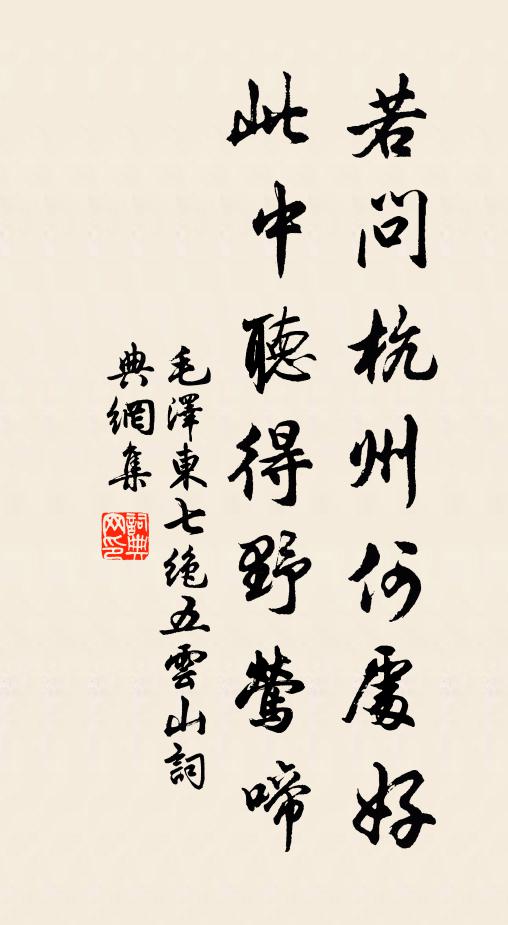 若問杭州何處好
此中聽得野鶯啼
毛澤東七絶五雲山詞
典網集
詞典
网印